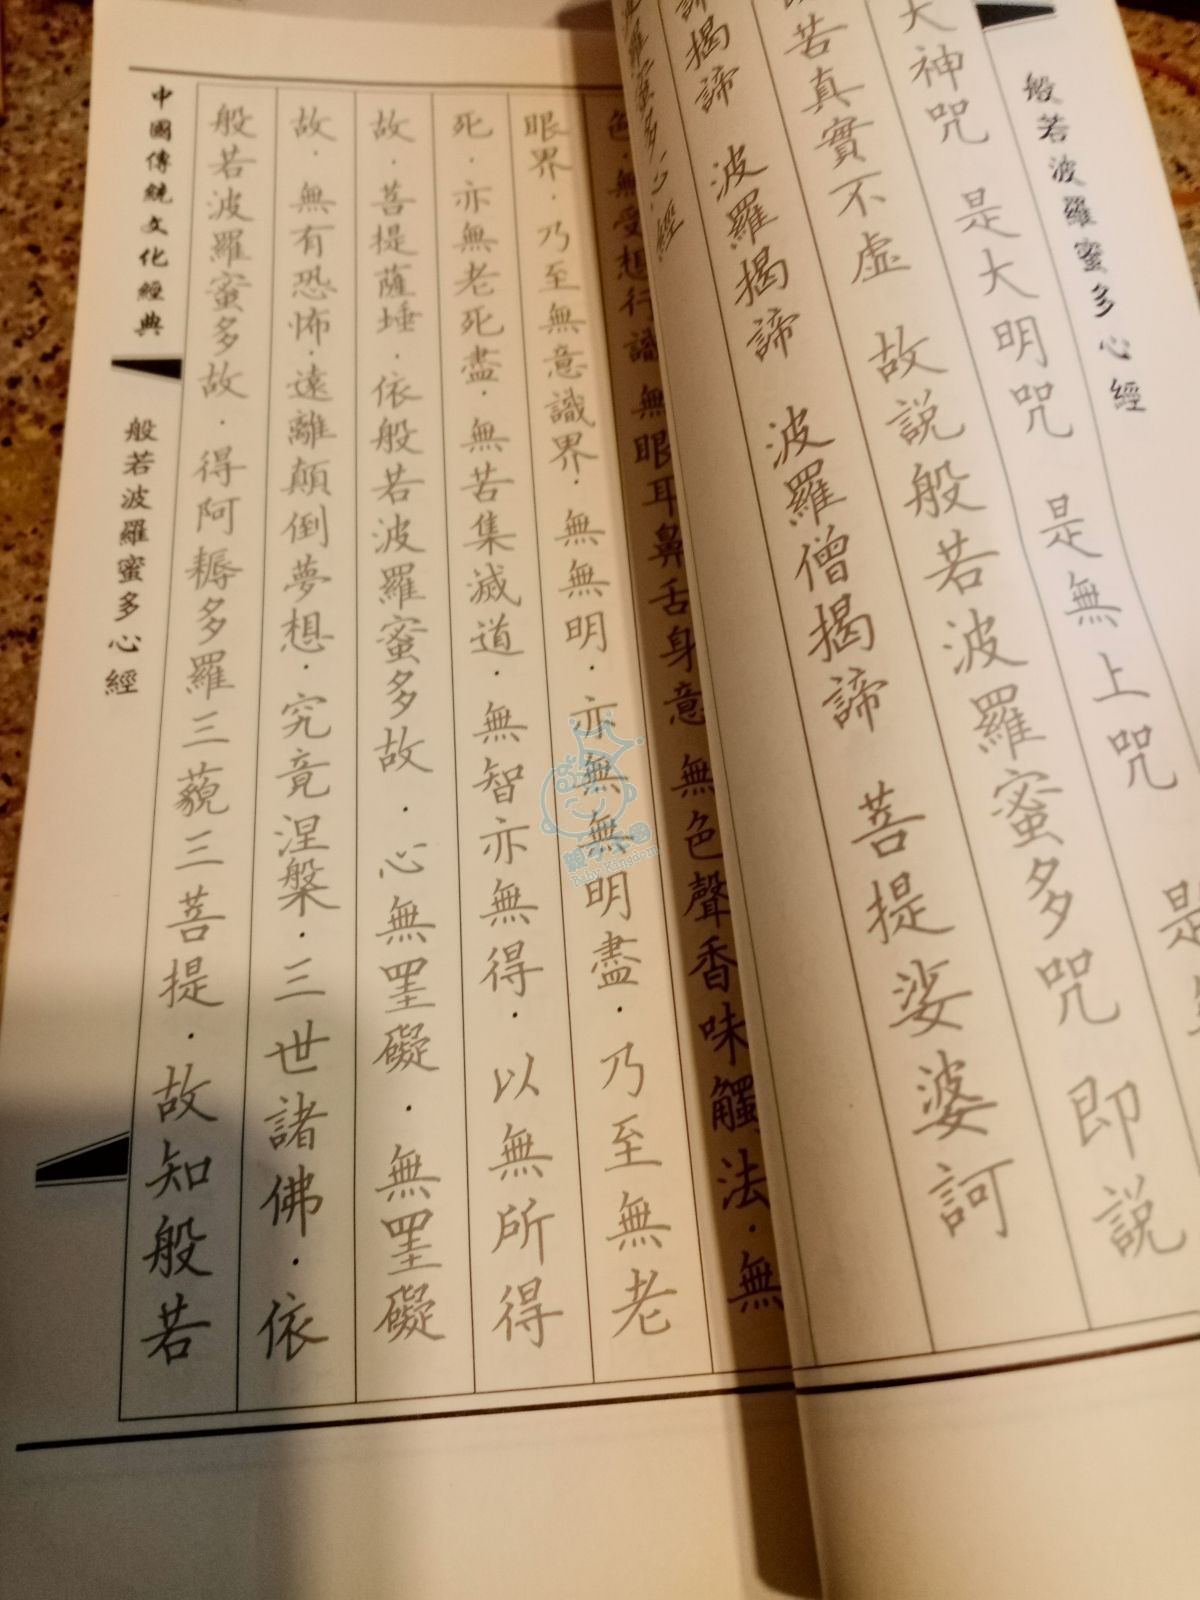 般若波羅蜜多心經
大神咒 是大明咒 是無上咒
若真實不虛 故說般若波羅蜜多咒 即說
諦揭諦 波羅揭諦 波羅僧揭諦 菩提娑婆訶
羅蜜多心經
色·無受想行識 無眼耳鼻舌身意 無色聲香味觸法·無
眼界·乃至無意識界·無無明·亦無無明盡·乃至無老
死·亦無老死盡·無苦集滅道·無智亦無得·以無所得
故·菩提薩埵·依般若波羅蜜多故·心無罣礙·無罣礙
故·無有恐怖·遠離顛倒夢想·究竟涅槃·三世諸佛·依
般若波羅蜜多故·得阿耨多羅三藐三菩提·故知般若
中國傳統文化經典
般若波羅蜜多心經
親子王國
Baby Kingdom